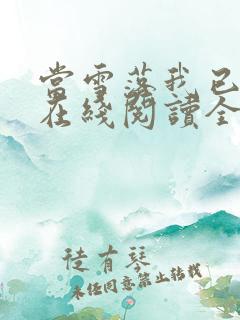 當雪落我已
在綫閱讀全
徒有琴
未经同意禁止转载